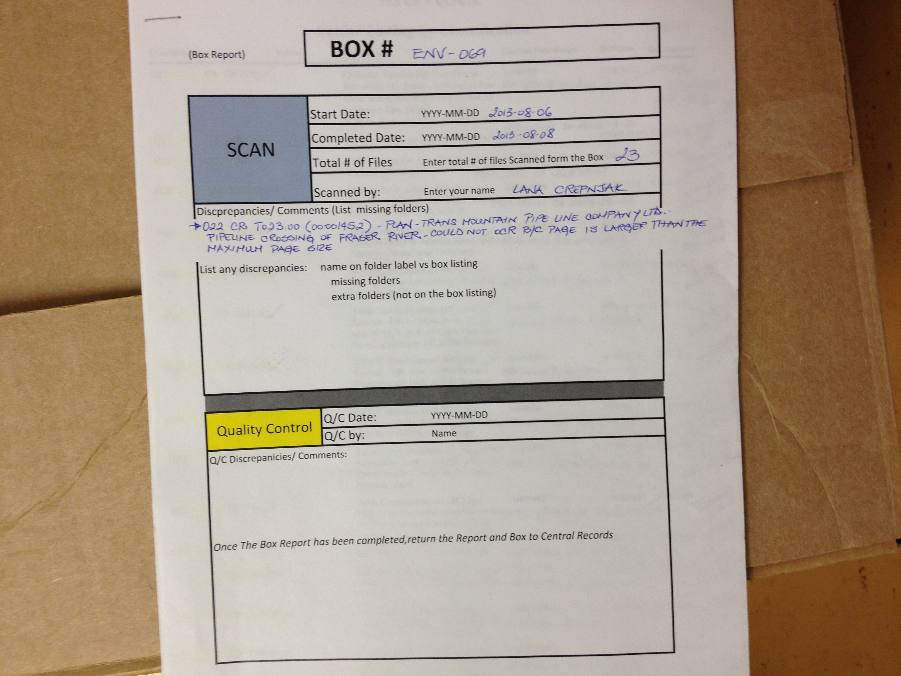 (Box Report)
BOX # ENV-069
SCAN
Start Date: YYYY-MM-DD 2013-08-06
Completed Date: YYYY-MM-DD 2013-08-08
Total # of Files Enter total # of files Scanned form the Box 23
Scanned by: Enter your name LANA CREPNJAK
Discprepancies/ Comments (List missing folders)
→ 022 CR T023.00 (00001452) - PLAN - TRANS MOUNTAIN PIPE LINE COMPANY LTD.
PIPELINE CROSSING OF FRASER RIVER - COULD NOT OCR B/C PAGE IS LARGER THAN THE
MAXIMUM PAGE SIZE
List any discrepancies: name on folder label vs box listing
missing folders
extra folders (not on the box listing)
Quality Control
Q/C Date: YYYY-MM-DD
Q/C by: Name
Q/C Discrepanicies/ Comments:
Once The Box Report has been completed,return the Report and Box to Central Records